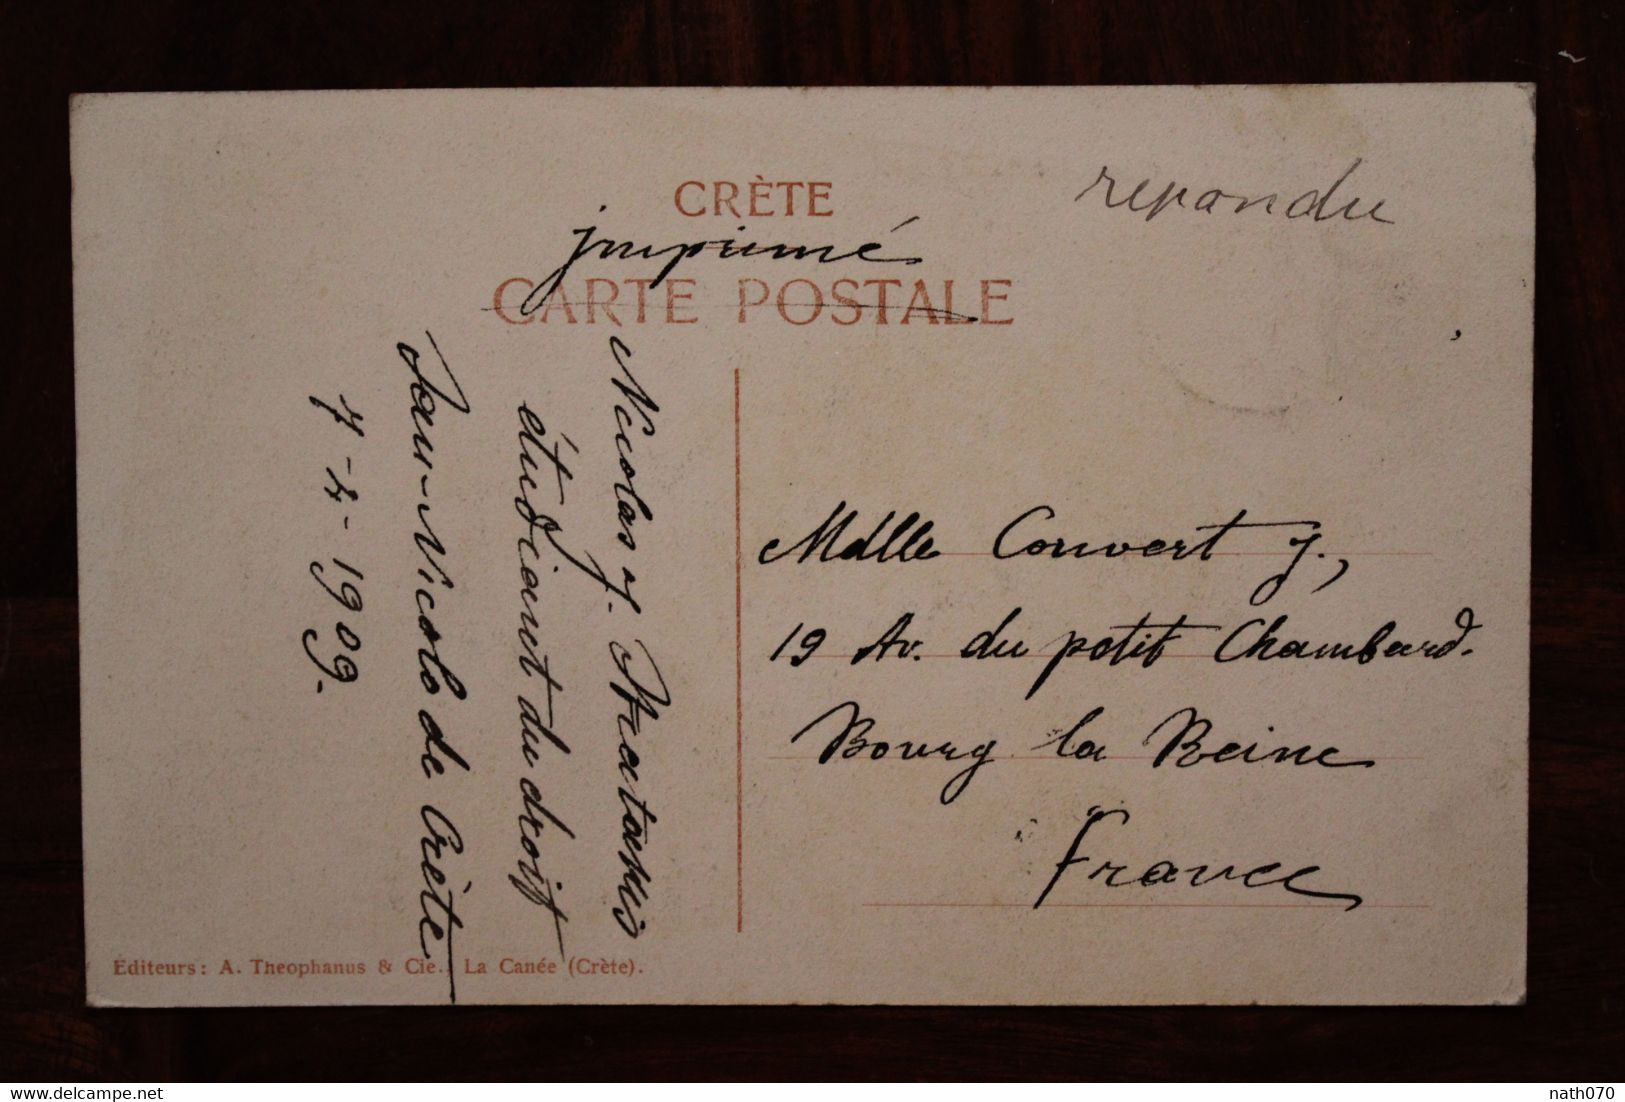 CRÈTE
repandu
imprimé
CARTE POSTALE
Nicolas J.
étudiant du droit
de Crète
7-4-1909.
Mdlle Convert J.,
19 Av. du petit Chambard.
Bourg la Reine
France
Editeurs: A. Theophanus & Cie., La Canée (Crète).
delcampe.net
nath070